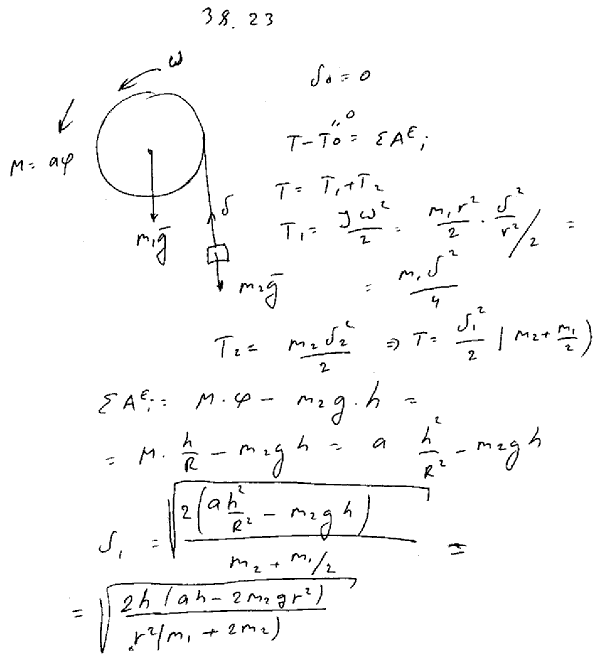 38.23
ω
M = aφ
m₁g̅
υ
m₂g̅
υ₀ = 0
T - T₀ = ΣAᴱᵢ
0
T = T₁ + T₂
T₁ = Jω²/2 = m₁r²/2 · υ²/r² /2 =
= m₁υ²/4
T₂ = m₂υ₂²/2 ⇒ T = υ₁²/2 (m₂ + m₁/2)
ΣAᴱᵢ = M·φ - m₂g·h =
= M · h/R - m₂gh = a h²/R² - m₂gh
υ₁ = √(2(ah²/R² - m₂gh) / (m₂ + m₁/2)) =
= √(2h(ah - 2m₂gr²) / r²(m₁ + 2m₂))